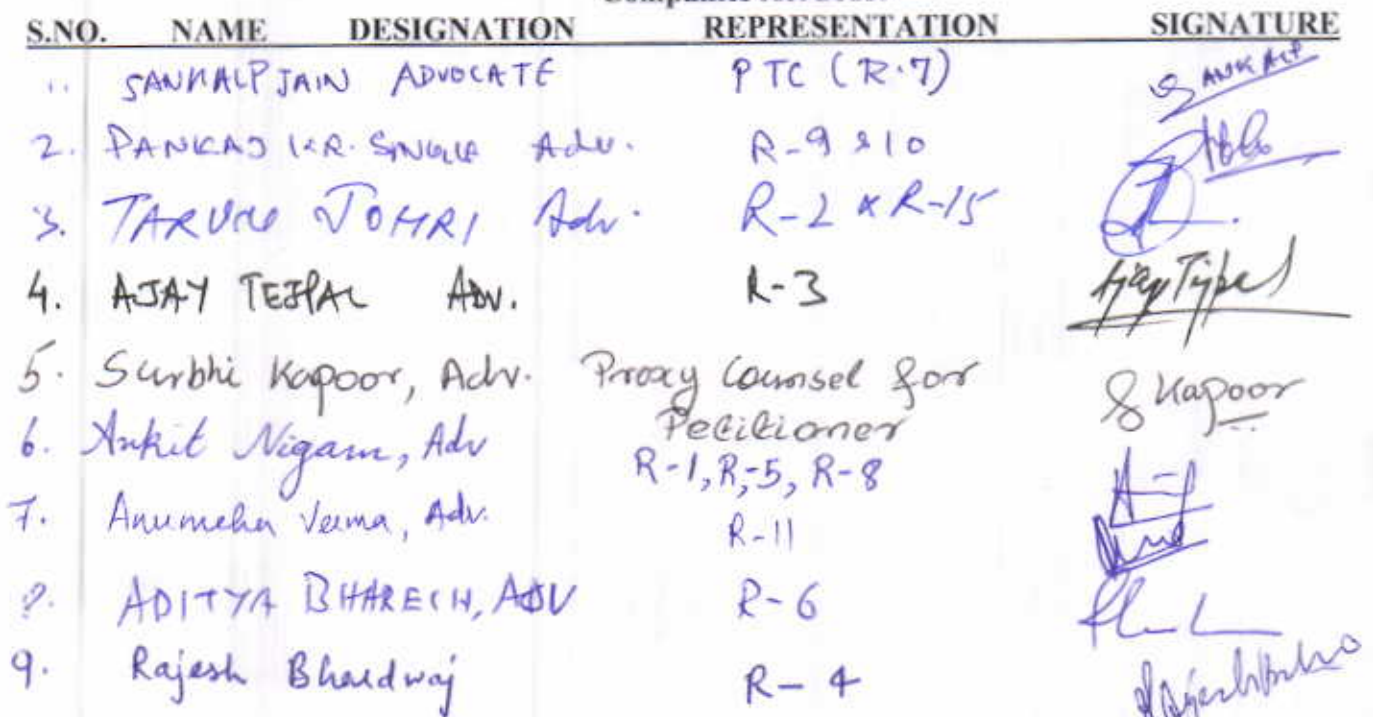 S.NO. NAME DESIGNATION REPRESENTATION SIGNATURE
1. SANKALP JAIN ADVOCATE PTC (R.7) SANKALP
2. PANKAJ KR. SINGH Adv. R-9 & 10
3. TARUN JOHRI Adv. R-2 & R-15
4. AJAY TEJPAL ADV. R-3 Ajay Tejpal
5. Surbhi Kapoor, Adv. Proxy Counsel for Petitioner S Kapoor
6. Ankit Nigam, Adv R-1, R-5, R-8
7. Anumeha Verma, Adv. R-11
8. ADITYA BHARECH, ADV R-6
9. Rajesh Bhardwaj R-4